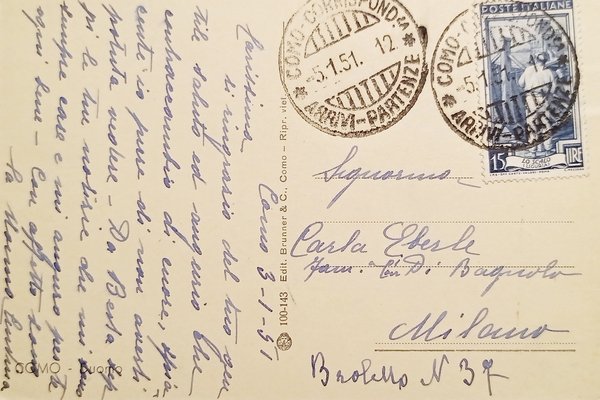 Como 3-1-51
Carissima
ti ringrazio del tuo gen
tile saluto ed augurio che
contraccambio di cuore, spia
cente io pure di non averti
potuta vedere - Da Berta sep
pi le tue notizie che mi sono
sempre care e mi auguro presto
ogni bene - Con affetto
la Nonna
COMO - Duomo
100-143 Edit. Brunner & C., Como - Ripr. viet.
COMO-CORRISPONDZA
5.1.51. 12
ARRIVI-PARTENZE
COMO-CORRISPONDZA
5.1.51. 12
ARRIVI-PARTENZE
POSTE ITALIANE
LO SCALO
LIGURIA
15 LIRE
Signorina
Carla Eberle
Fam. Di Bagnolo
Milano
Broletto N 37